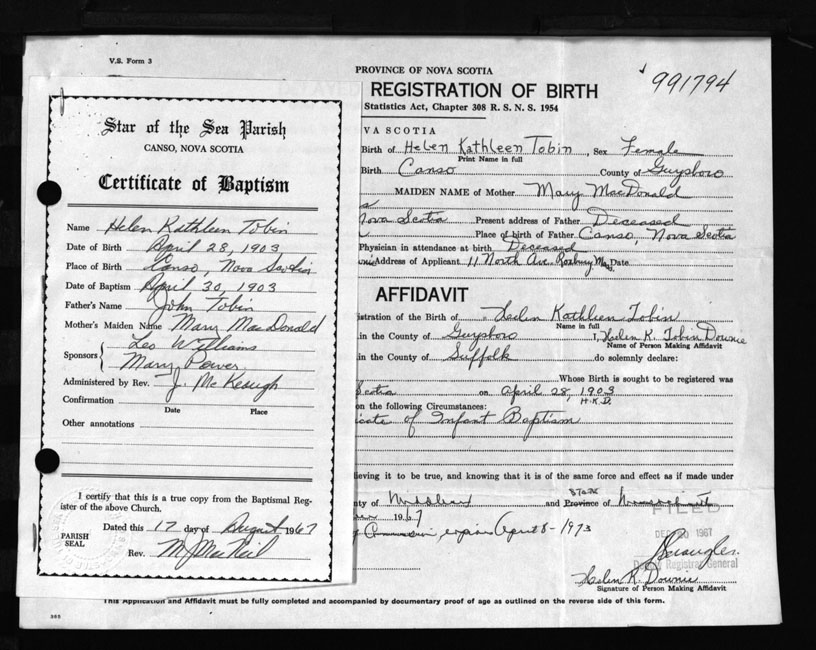 V.S. Form 3
Star of the Sea Parish
CANSO, NOVA SCOTIA
Certificate of Baptism
Name Helen Kathleen Tobin
Date of Birth April 28, 1903
Place of Birth Canso, Nova Scotia
Date of Baptism April 30, 1903
Father's Name John Tobin
Mother's Maiden Name Mary MacDonald
Sponsors { Leo Williams
Mary Power
Administered by Rev. J. McKeough
Confirmation
Date Place
Other annotations
I certify that this is a true copy from the Baptismal Reg-
ister of the above Church.
Dated this 17 day of August 1967
PARISH
SEAL
Rev. M J MacNeil
PROVINCE OF NOVA SCOTIA
991794
REGISTRATION OF BIRTH
Statistics Act, Chapter 308 R. S. N. S. 1954
VA SCOTIA
Birth of Helen Kathleen Tobin, Sex Female
Print Name in full
Birth Canso County of Guysboro
MAIDEN NAME of Mother Mary MacDonald
Nova Scotia Present address of Father Deceased
Place of birth of Father Canso, Nova Scotia
Physician in attendance at birth Deceased
Address of Applicant 11 North Ave. Roxbury Mass Date
AFFIDAVIT
istration of the Birth of Helen Kathleen Tobin
Name in full
in the County of Guysboro I, Helen K. Tobin Downie
Name of Person Making Affidavit
in the County of Suffolk do solemnly declare:
Whose Birth is sought to be registered was
Scotia on April 28, 1903
H.K.D.
on the following Circumstances:
icate of Infant Baptism
ieving it to be true, and knowing that it is of the same force and effect as if made under
State
ty of Middlesex and Province of Massachusetts
FILED
1967
Commission expires April 8-1973
DEC 20 1967
Deputy Registrar General
Helen K. Downie
Signature of Person Making Affidavit
This Application and Affidavit must be fully completed and accompanied by documentary proof of age as outlined on the reverse side of this form.